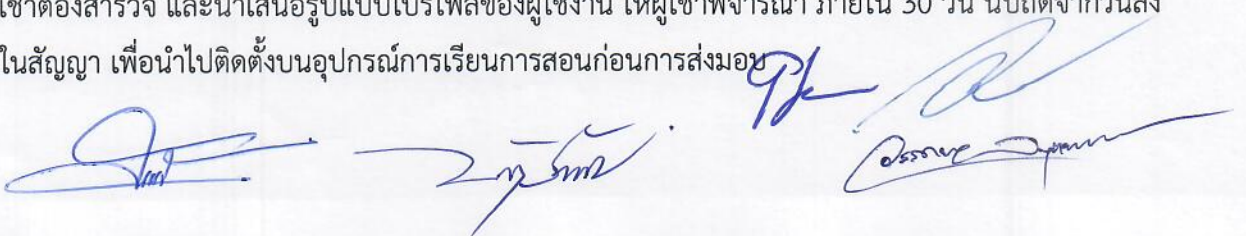 เช่าต้องสำรวจ และนำเสนอรูปแบบโปรไฟล์ของผู้ใช้งาน ให้ผู้เช่าพิจารณา ภายใน 30 วัน นับถัดจากวันลง
ในสัญญา เพื่อนำไปติดตั้งบนอุปกรณ์การเรียนการสอนก่อนการส่งมอบ